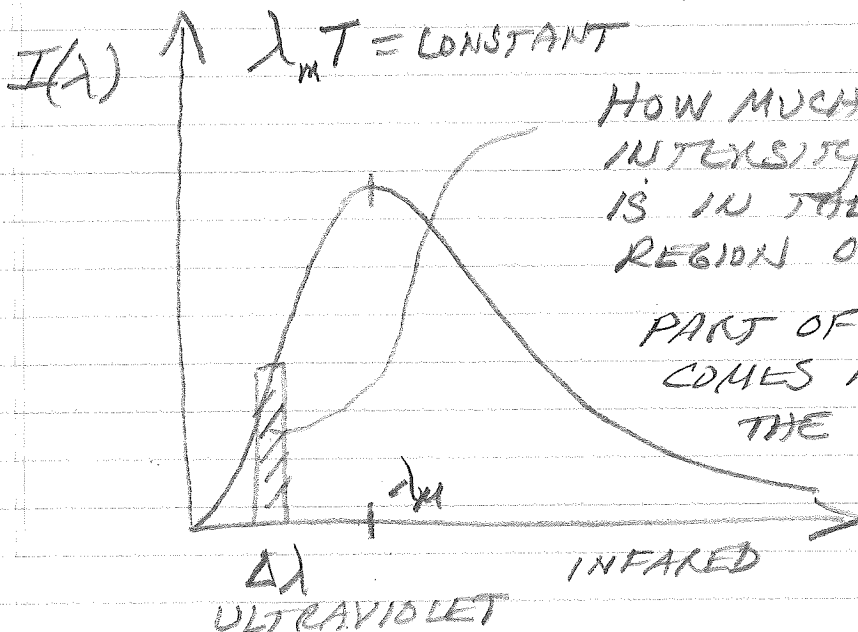 I(λ) λₘT = CONSTANT
HOW MUCH
INTERSITY
IS IN THE
REGION O
PART OF
COMES
THE
λₘ
Δλ INFARED
ULTRAVIOLET